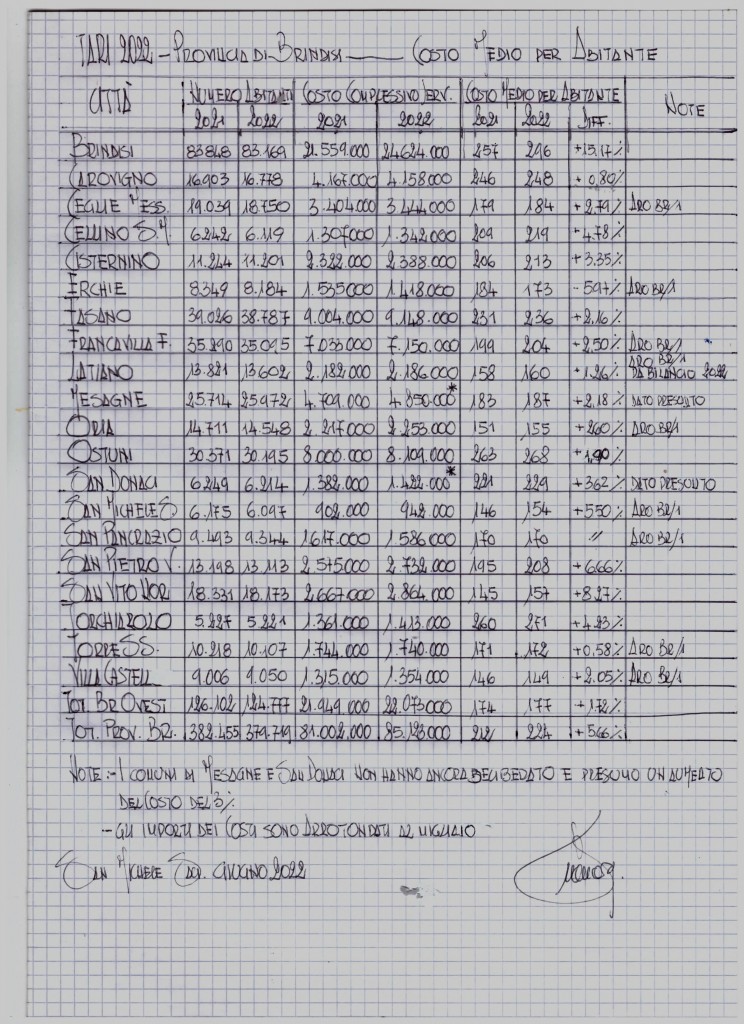 TARI 2022 - PROVINCIA DI BRINDISI - COSTO MEDIO PER ABITANTE
CITTÀ NUMERO ABITANTI COSTO COMPLESSIVO SERV. COSTO MEDIO PER ABITANTE NOTE
2021 2022 2021 2022 2021 2022 DIFF.
BRINDISI 83848 83.169 21.559.000 24624.000 257 296 +15,17%
CAROVIGNO 16903 16.778 4.167.000 4.158000 246 248 +0,80%
CEGLIE MESS. 19.039 18.750 3.404.000 3.444.000 179 184 +2,79% ARO BR/1
CELLINO S.M. 6.242 6.119 1.307000 1.342.000 209 219 +4,78%
CISTERNINO 11.244 11.201 2.322.000 2.388.000 206 213 +3,35%
ERCHIE 8.349 8.184 1.535000 1.418.000 184 173 -597% ARO BR/1
FASANO 39.026 38.787 9.004.000 9.148.000 231 236 +2,16%
FRANCAVILLA F. 35.290 35095 7.033.000 7.150.000 199 204 +2,50% ARO BR/1
LATIANO 13.821 13602 2.182.000 2.186.000 158 160 +1,26% ARO BR/1 DA BILANCIO 2022
MESAGNE 25.714 25.972 4.709.000 4.850.000* 183 187 +2,18% DATO PRESUNTO
ORIA 14.711 14.548 2.217000 2.253.000 151 155 +260% ARO BR/1
OSTUNI 30.371 30.195 8.000.000 8.109.000 263 268 +1,90%
SAN DONACI 6.249 6.214 1.382.000 1.422.000* 221 229 +362% DATO PRESUNTO
SAN MICHELE S 6.175 6.097 902.000 942.000 146 154 +550% ARO BR/1
SAN PANCRAZIO 9.493 9.344 1617.000 1.586000 170 170 // ARO BR/1
SAN PIETRO V. 13.198 13.113 2.575000 2.732.000 195 208 +666%
SAN VITO NOR 18.331 18.173 2.667000 2.864.000 145 157 +8,27%
TORCHIAROLO 5.227 5.221 1.361.000 1.413.000 260 271 +4,23%
TORRE SS. 10.218 10.107 1.744.000 1.740.000 171 172 +0,58% ARO BR/1
VILLA CASTELL 9.006 9.050 1.315.000 1.354.000 146 149 +2,05% ARO BR/1
TOT. BR OVEST 126.102 124.777 21.949.000 22.073000 174 177 +1,72%
TOT. PROV. BR. 382.455 379.719 81.002.000 85.123.000 212 224 +566%
NOTE :- I COMUNI DI MESAGNE E SAN DONACI NON HANNO ANCORA DELIBERATO E PRESUMO UN AUMENTO
DEL COSTO DEL 3%
- GLI IMPORTI DEI COSTI SONO ARROTONDATI AL MIGLIAIO
SAN MICHELE SAL. GIUGNO 2022